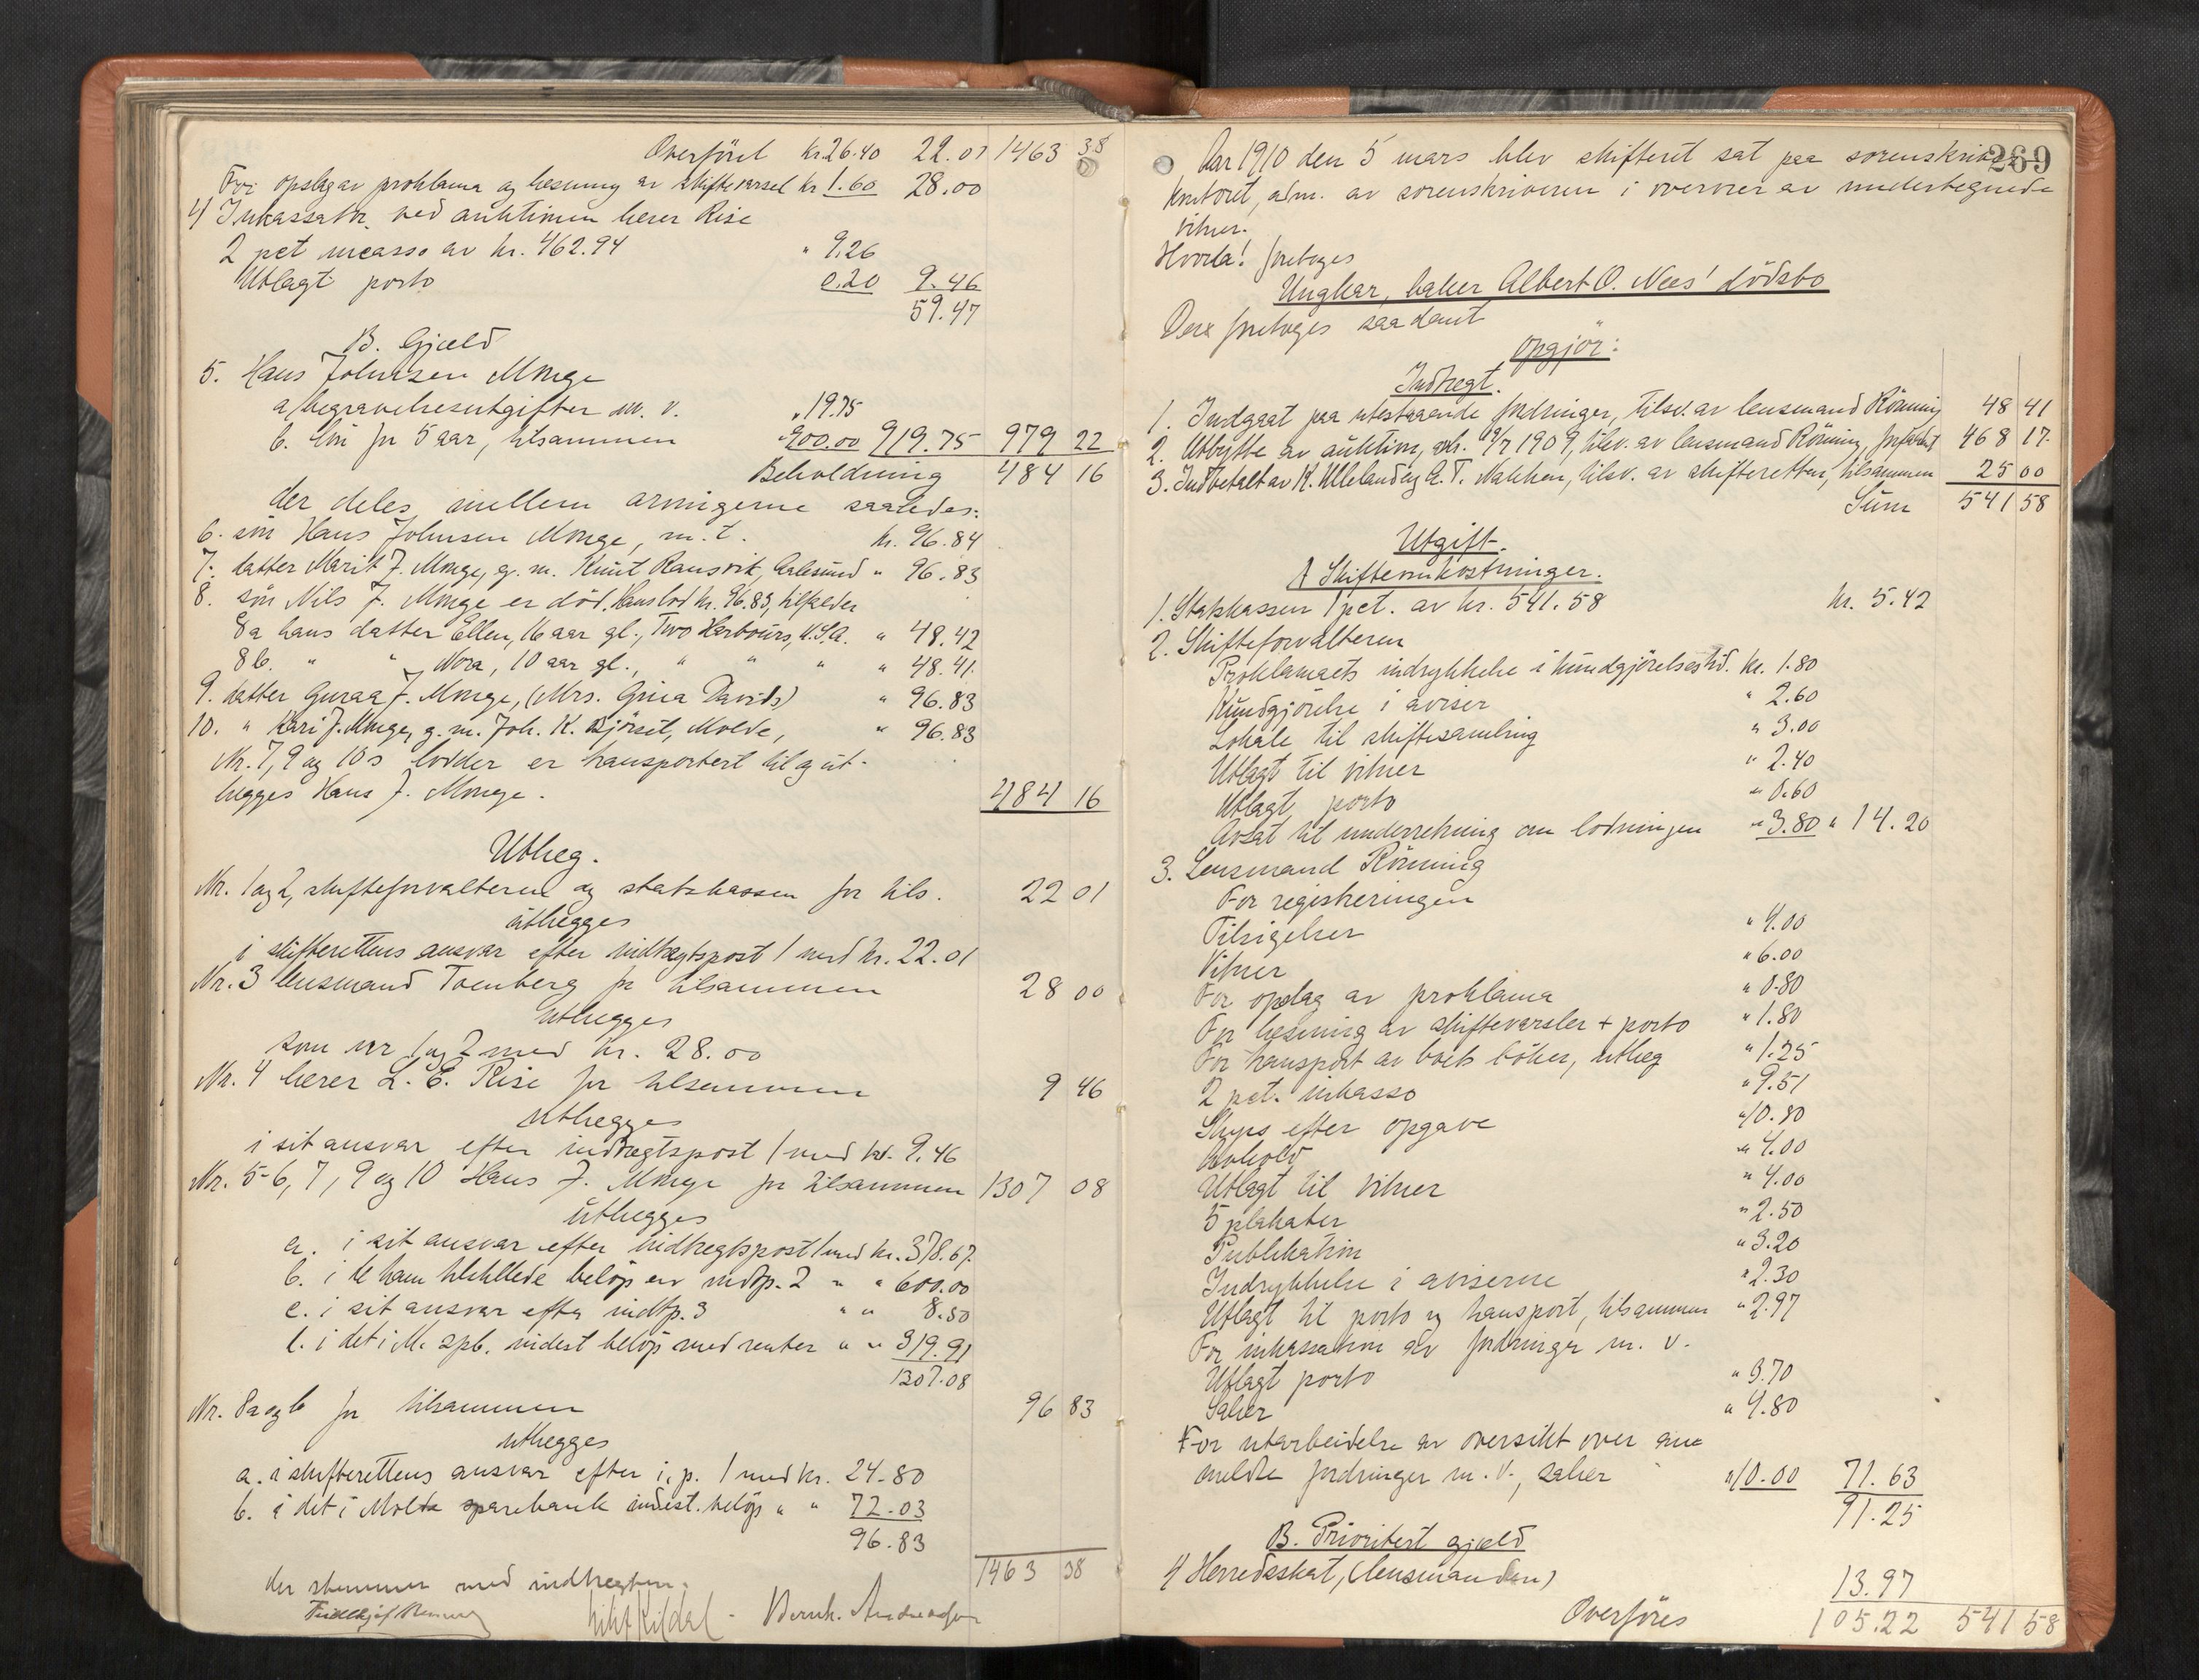 Overført kr. 26.40 22.01 1463 38
For opslag av proklama og læsning av skiftevarsel kr 1.60 28.00
4 Inkassator ved auktionen lærer Rise
2 pct incasso av kr. 462.94 " 9.26
Utlagt porto 0.20 9.46
59.47
B. Gjæld
5. Hans Johnsen Monge
a/begravelsesutgifter m. v. " 19.75
b. løn for 5 aar, tilsammen " 900.00 919.75 979 22
Beholdning 484 16
der deles mellem arvingerne saaledes:
6. søn Hans Johnsen Monge, m. t. kr. 96.84
7. datter Marit J. Monge, g. m. Knut Ransvik, Aalesund " 96.83
8. søn Nils J. Monge er død. Hans lod kr. 96.83, tilfalder
8a hans datter Ellen, 16 aar gl., Two Harbours, U.S.A. " 48.42
8b. " " Nora, 10 aar gl., " " " " 48.41.
9. datter Guraa J. Monge, (Mrs. Gina Davids) " 96.83
10. " Kari J. Monge, g. m. Joh. K. Bjørset, Molde, " 96.83
Nr. 7, 9 og 10s lodder er transportert til og ut-
lægges Hans J. Monge. 484 16
Utlæg.
Nr. 1 og 2, skifteforvalteren og statskassen for tils. 22 01
utlægges
i skifterettens ansvar efter indtægtspost 1 med kr. 22.01
Nr. 3 lensmand Toenberg for tilsammen 28 00
utlægges
som nr 1 og 2 med kr. 28.00
Nr. 4 lærer L. E. Rise for tilsammen 9 46
utlægges
i sit ansvar efter indtægtspost 1 med kr. 9.46
Nr. 5-6, 7, 9 og 10 Hans J. Monge for tilsammen 1307 08
utlægges
a. i sit ansvar efter indtægtspost 1 med kr. 378.67.
b. i de ham tilstillede beløp av indtp. 2 " " 600.00
c. i sit ansvar efter indtp. 3 " " 8.50
d. i det i M. spb. indest. beløp med renter " " 319.91
1307.08
Nr. 8a og b for tilsammen 96 83
utlægges
a. i skifterettens ansvar efter i. p. 1 med kr. 24.80
b. i det i Molde sparebank indest. beløp " " 72.03
96.83
1463 38
der stemmer med indtægten.
Bernh. Andreassen
269
Aar 1910 den 5 mars blev skifteret sat paa sorenskriver-
kontoret, adm. av sorenskriveren i overvær av undertegnede
vitner.
Hvorda! foretoges
Ungkar, baker Albert O. Næs' dødsbo
Derx foretoges saadant
Opgjør:
Indtægt.
1. Indgaat paa utestaaende fordringer, tilsv. av lensmand Rønning 48 41
2. Utbytte av auktion, avh. 19/7 1909, tilsv. av lensmand Rønning, forfaldt 468 17.
3. Indbetalt av K. Ulleland og A. T. Nakken, tilsv. av skifteretten, tilsammen 25 00
Sum 541 58
Utgift.
A Skifteomkostninger.
1. Statskassen 1 pct. av kr. 541.58 kr. 5.42
2. Skifteforvalteren
Proklamaets indrykkelse i kundgjørelsestid. kr. 1.80
Kundgjørelse i aviser " 2.60
Lokale til skiftesamling " 3.00
Utlagt til vitner " 2.40
Utlagt porto " 0.60
Avsat til underretning om lodningen " 3.80 " 14.20
3. Lensmand Rønning
For registreringen " 4.00
Tilsigelser " 6.00
Vitner " 0.80
For opslag av proklama " 1.80
For læsning av skiftevarsler + porto " 1.25
For transport av boets bøker, utlæg " 9.51
2 pct. inkasso " 10.80
Skyss efter opgave " 4.00
Avhold " 4.00
Utlagt til vitner " 2.50
5 plakater " 3.20
Publikation " 2.30
Indrykkelse i aviserne " 2.97
Utlagt til porto og transport, tilsammen
For inkassation av fordringer m. v. " 3.70
Utlagt porto " 4.80
Salær
For utarbeidelse av oversikt over an-
meldte fordringer m. v., salær " 10.00 71.63
91.25
B. Prioritert gjæld
4 Herredsskat, (lensmanden) 13.97
Overføres 105.22 541 58